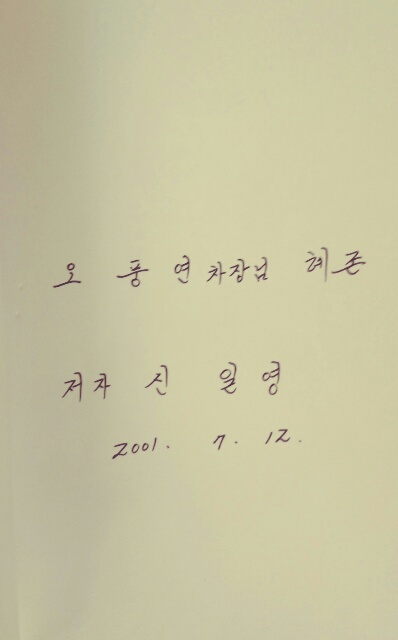 오 풍 연 차장님 혜존
저자 신 일 영
2001. 7. 12.